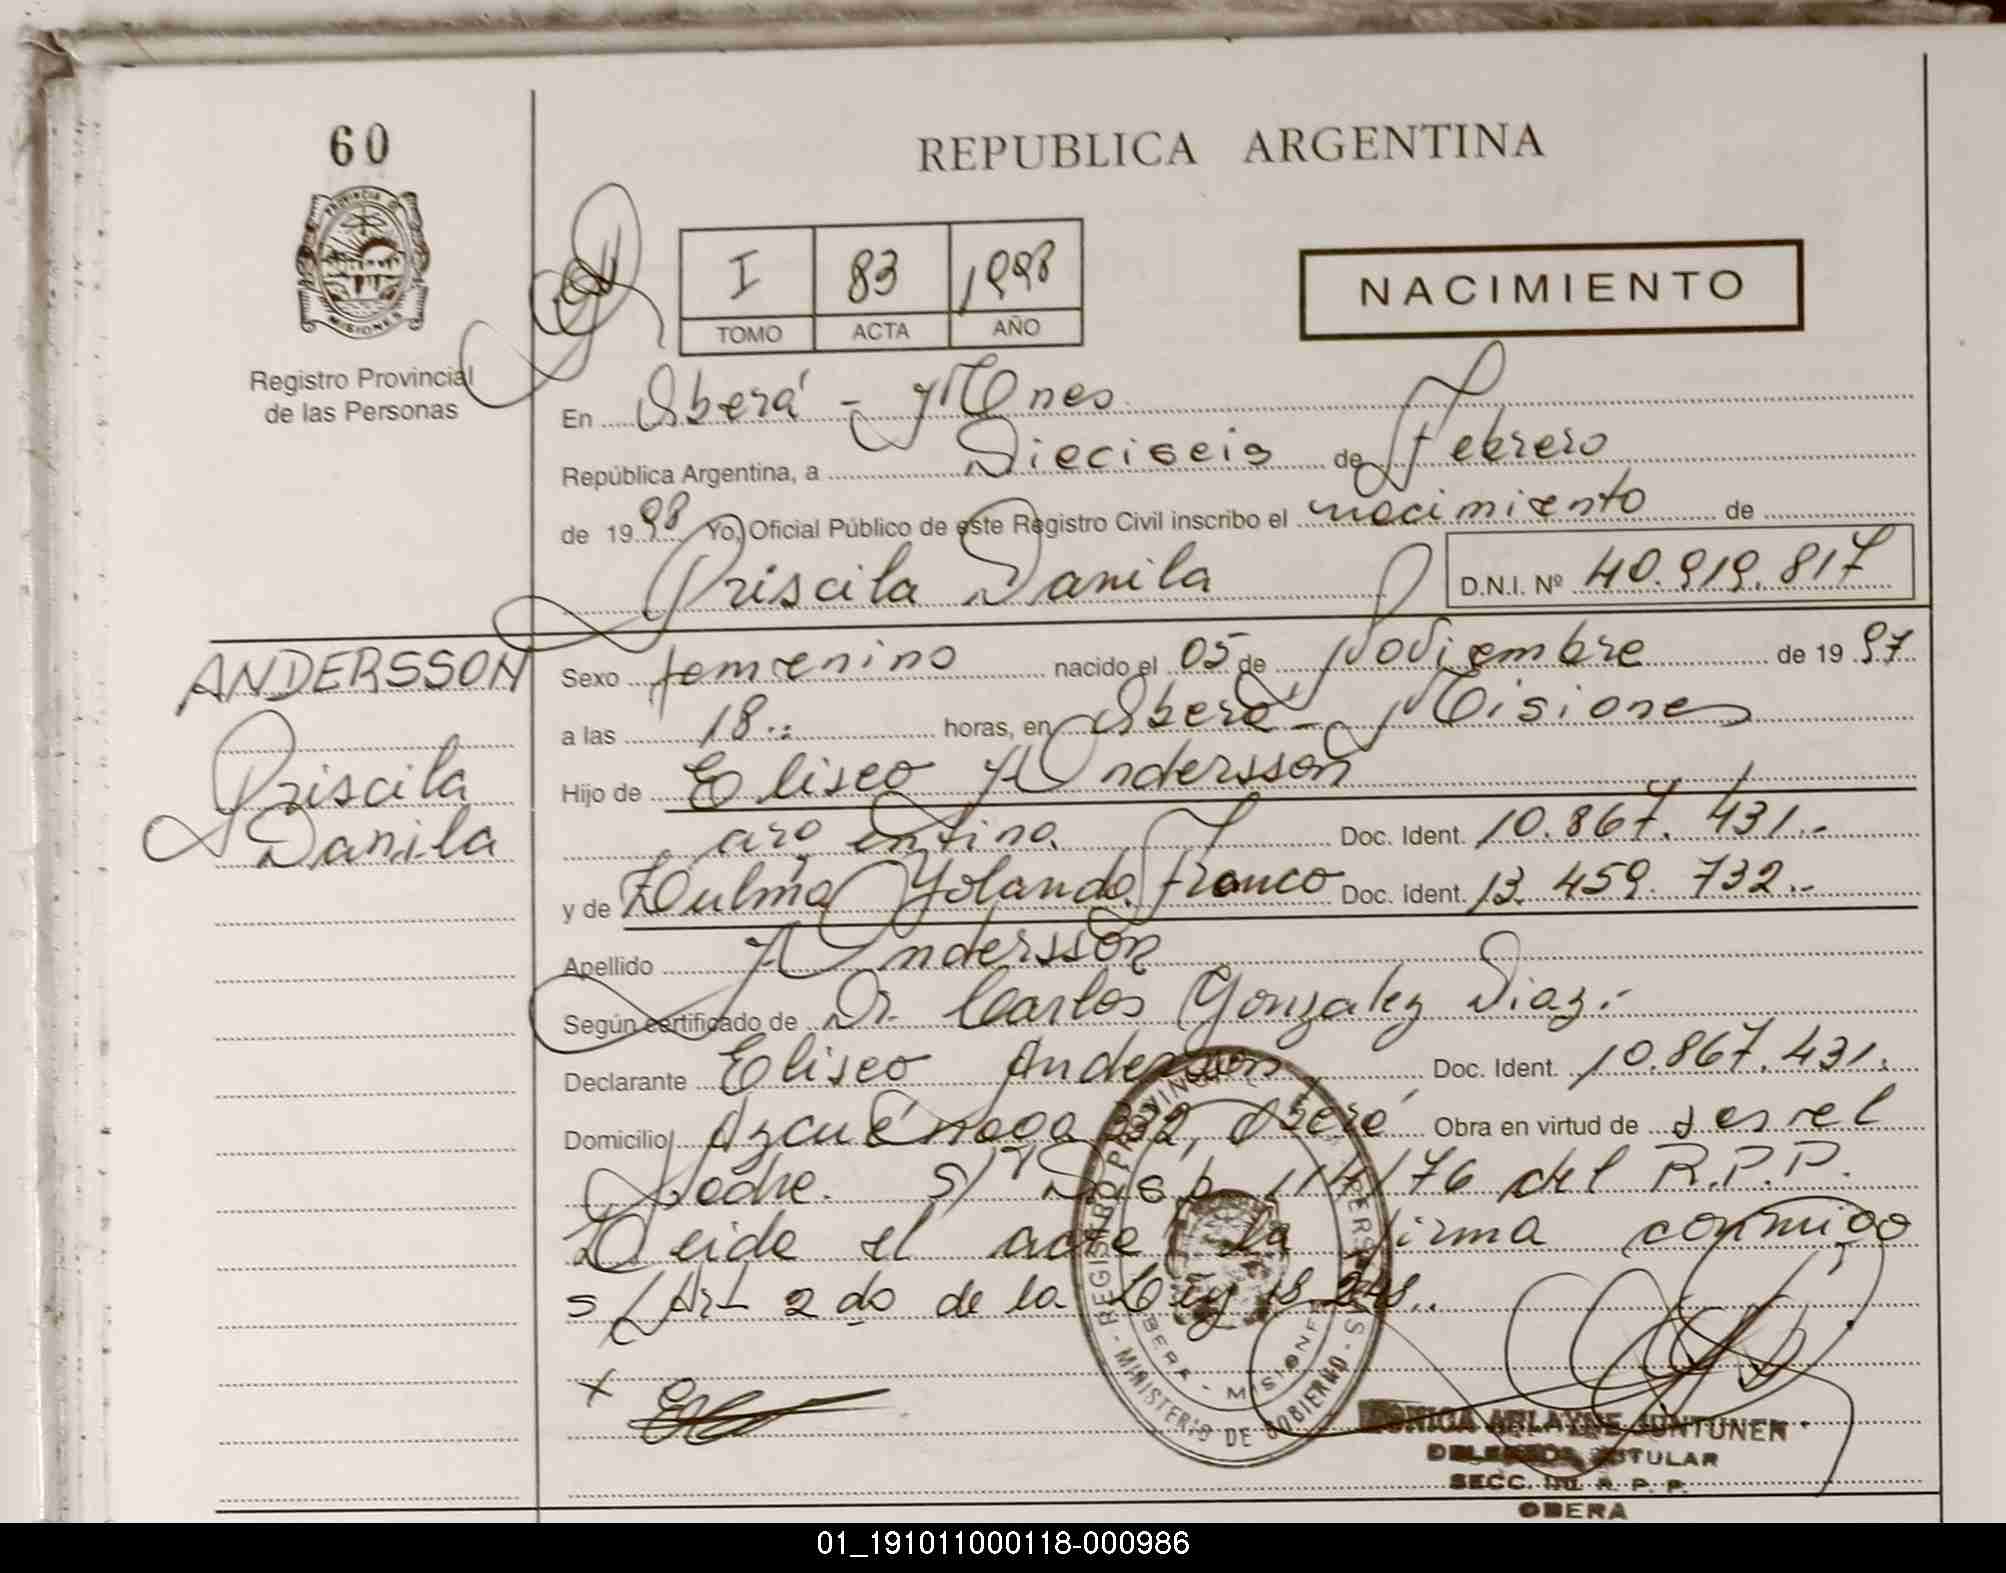 60
PROVINCIA D
MISIONES
Registro Provincial
de las Personas
REPUBLICA ARGENTINA
I 83 1998
TOMO ACTA AÑO
NACIMIENTO
En Oberá - Mnes
República Argentina, a Dieciseis de Febrero
de 1998 Yo, Oficial Público de este Registro Civil inscribo el nacimiento de
Priscila Danila D.N.I. Nº 40.919.817
ANDERSSON
Priscila
Danila
Sexo femenino nacido el 05 de Noviembre de 1997
a las 18.. horas, en Oberá - Misiones
Hijo de Eliseo Andersson
argentino. Doc. Ident. 10.867.431.-
y de Zulma Yolanda Franco Doc. Ident. 13.459.732.-
Apellido Andersson
Según certificado de Dr. Carlos Gonzalez Diaz.-
Declarante Eliseo Andersson Doc. Ident. 10.867.431.
Domicilio Azcuénaga 332, Oberá Obra en virtud de ser el
Padre. s/ Disp. 114/76 del R.P.P.
Leida el acta la firma conmigo
s/Art 2do de la Ley 18.248..
x
REGISTRO PROVINCIAL PERSONAS - MINISTERIO DE GOBIERNO -
OBERA - MISIONES
MONICA ARLAYNE JUNTUNEN
DELEGADA TITULAR
SECC. R. P. P.
OBERA
01_191011000118-000986